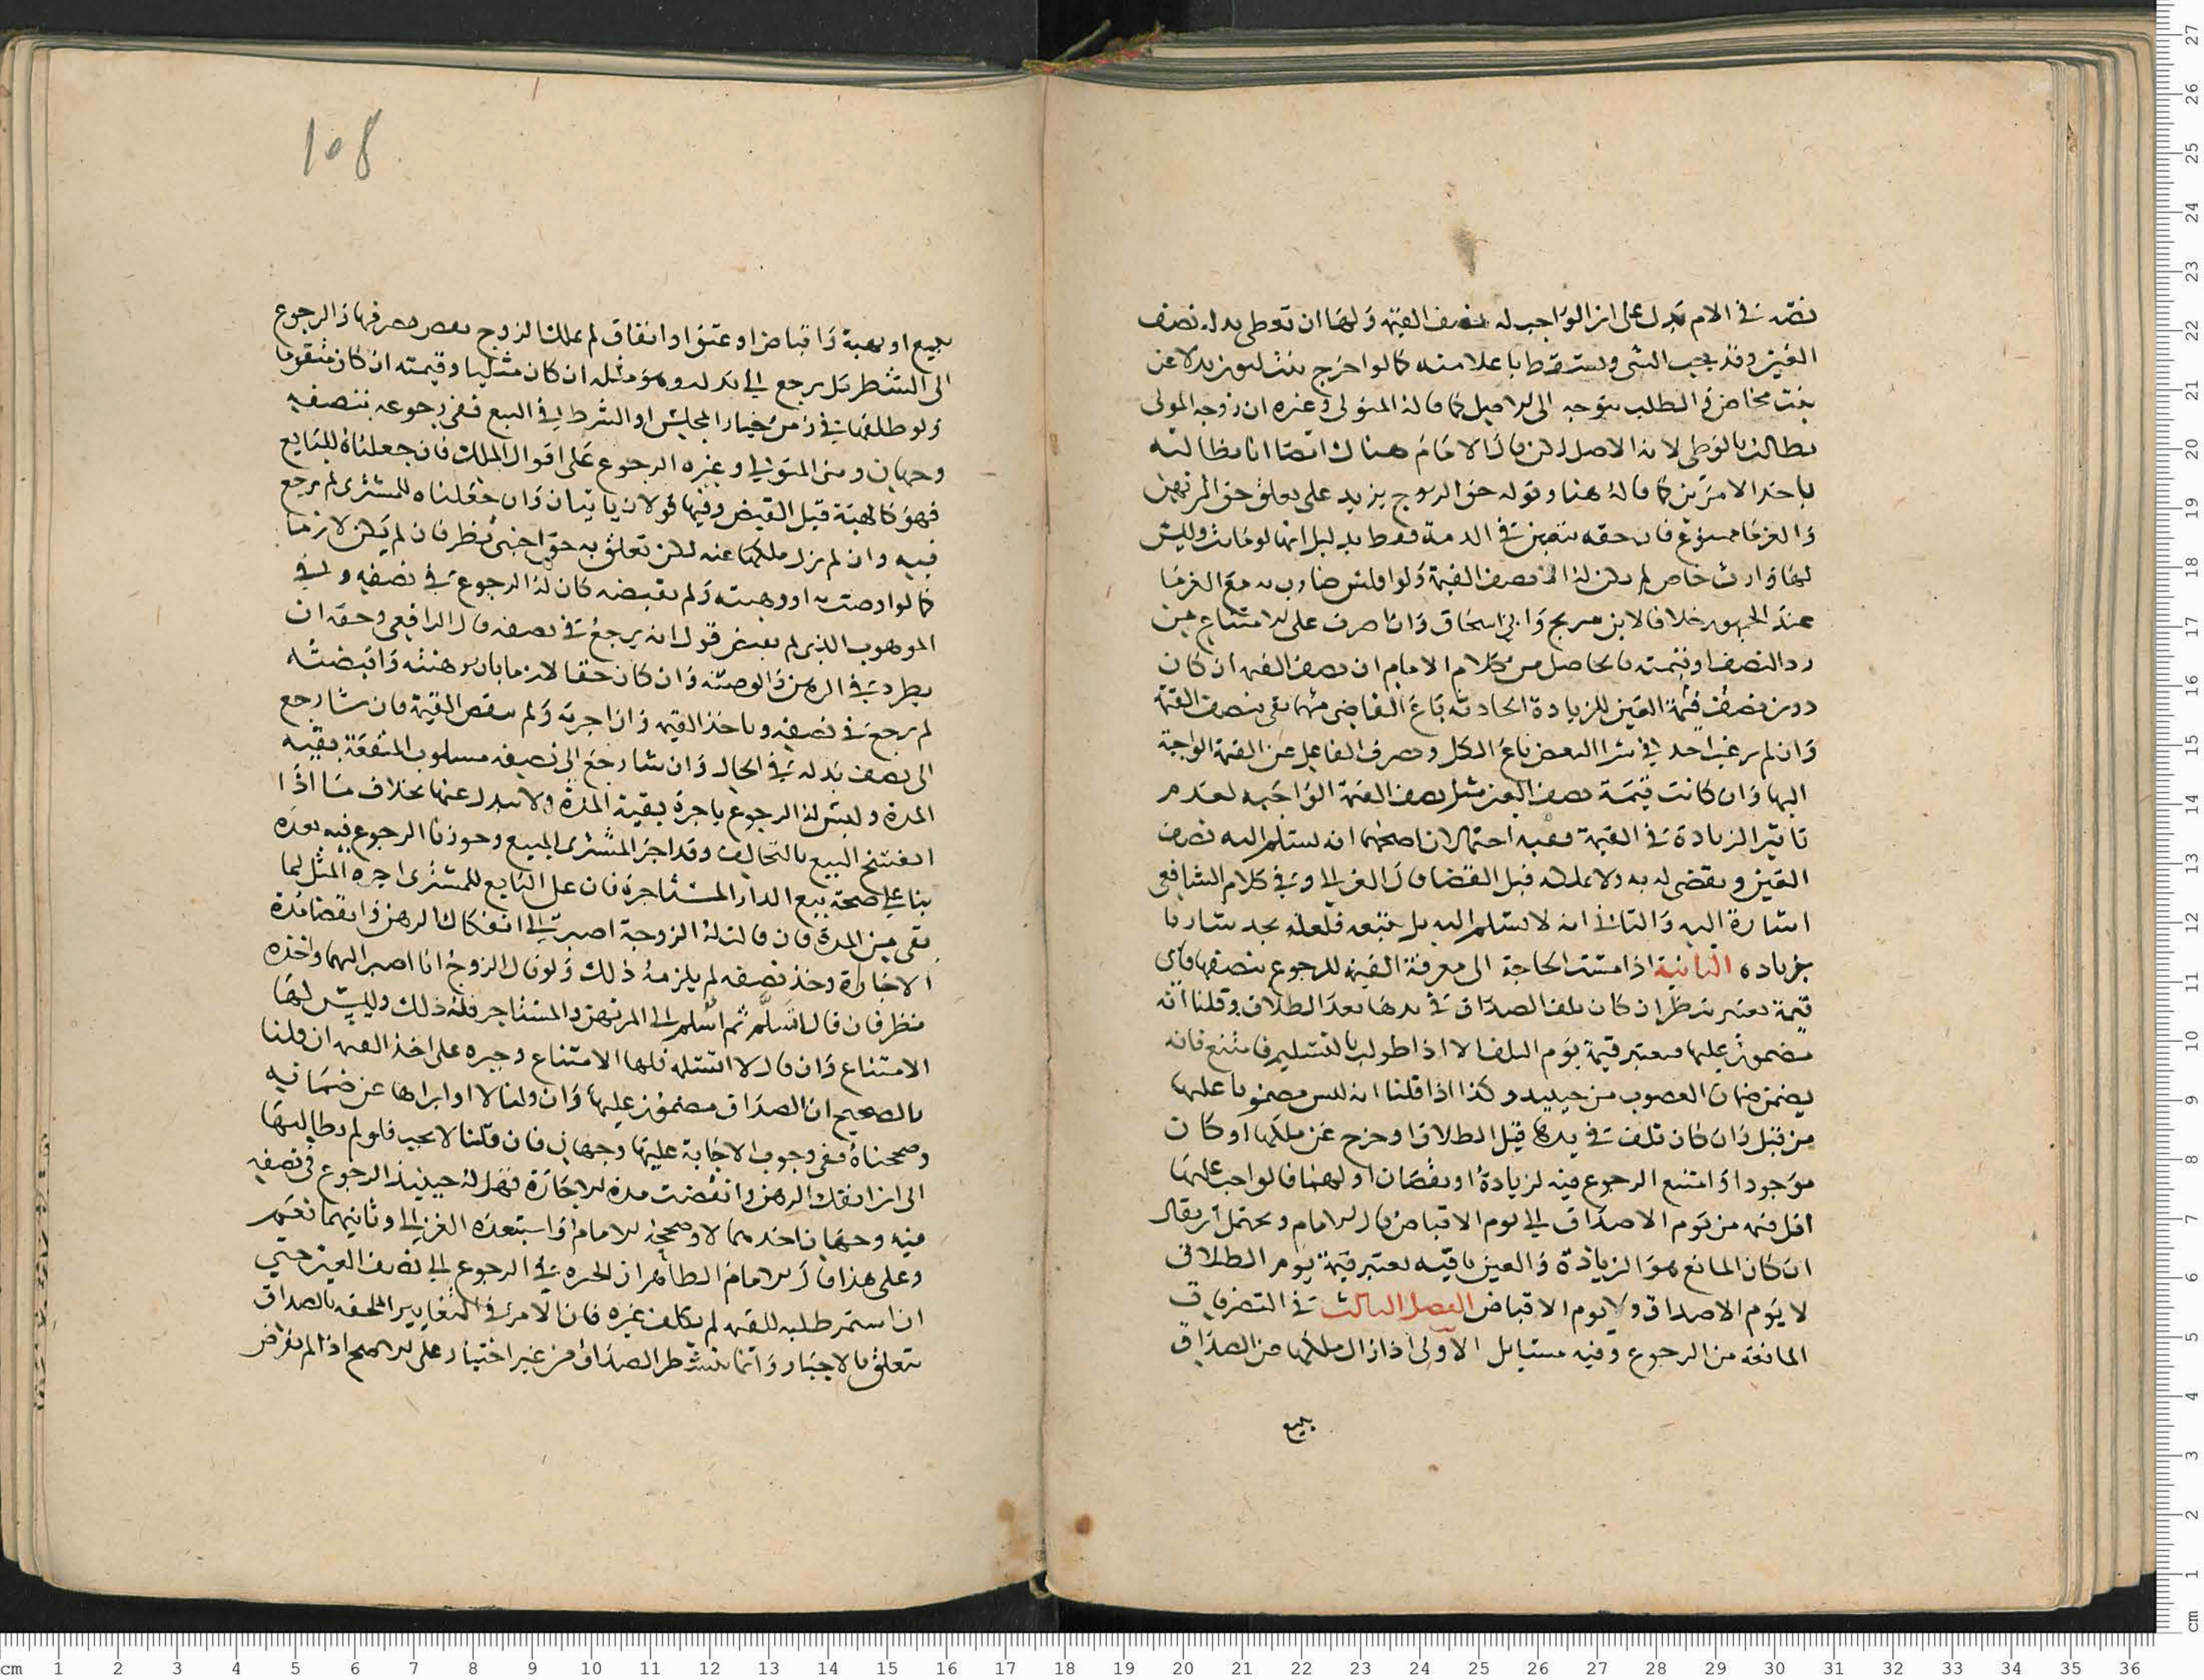 نصه في الام يدل على ان الواجب له نصف القيمة ولها ان تعطي بدله نصف
العين وقد يجب الشي ويسقط باعلا منه كما لو اخرج بنت لبون بدلا عن
بنت مخاض والطلب يتوجه الى الاصيل كما قاله المتولي وغيره ان زوجه المولى
يطالب بالوطي لانه الاصل لكن قال الامام هناك ايضا انا نطالبه
باحد الامرين كما قاله هنا وقوله حق الزوج يزيد على تعلق حق المرتهن
والغرما ممنوع فان حقه يتعين في الذمة فقط بدليل انها لو ماتت وليس
لها وارث خاص لم يكن له الا نصف القيمة ولو افلس ضارب به مع الغرما
عند الجمهور خلافا لابن سريج وابي اسحاق وان اصرت على الامتناع من
رد النصف او قيمته فالحاصل من كلام الامام ان نصف القيمة ان كان
دون نصف قيمة العين للزيادة الحادثه باع القاضي منها ما يفي بنصف القيمة
وان لم يرغب احد في شرا البعض باع الكل وصرف الفاضل عن القيمة الواجبة
اليها وان كانت قيمة نصف العين مثل نصف القيمة الواجبه لعدم
تاثير الزيادة في القيمة ففيه احتمالان اصحهما انه يسلم اليه نصف
العين ويقضى له به ولا يملكه قبل القضا قال الغزالي وفي كلام الشافعي
اشارة اليه والثاني انه لا يسلم اليه بل يبيعه فلعله يجد مشتريا
بزياده الثانية اذا مست الحاجة الى معرفة القيمة للرجوع بنصفها فاي
قيمة تعتبر ينظر ان كان تلف الصداق في يدها بعد الطلاق وقلنا انه
مضمون عليها فيعتبر قيمة يوم التلف الا اذا طولب بالتسليم فامتنع فانه
يضمن ضمان الغصوب من حينيد وكذا اذا قلنا انه ليس مضمونا عليها
من قبل وان كان تلف في يدها قبل الطلاق او خرج عن ملكها او كان
موجودا وامتنع الرجوع فيه لزيادة او نقصان او لهما فالواجب عليها
اقل قيمه من يوم الاصداق الى يوم الاقباض قال الامام ويحتمل ان يقال
ان كان المانع هو الزيادة والعين باقيه تعتبر قيمة يوم الطلاق
لا يوم الاصداق ولا يوم الاقباض الفصل الثالث في التصرفات
المانعة من الرجوع وفيه مسايل الاولى اذا زال ملكها عن الصداق
ببيع
108
ببيع او بهبة واقباض او عتق او انفاق لم يملك الزوج نقض تصرفها والرجوع
الى الشطر بل يرجع الى بدله وهو مثله ان كان مثليا وقيمته ان كان متقوما
ولو طلقها في زمن خيار المجلس او الشرط في البيع ففي رجوعه بنصفه
وجهان وبنى المتولي وغيره الرجوع على اقوال الملك فان جعلناه للبايع
فهو كالهبة قبل القبض وفيها قولان ياتيان وان جعلناه للمشتري لم يرجع
فيه وان لم يزل ملكها عنه لكن تعلق به حق اجنبي نظر فان لم يكن لازما
كما لو اوصت به او وهبته ولم تقبضه كان له الرجوع في نصفه وفي
الموهوب الذي لم يقبض قول انه يرجع في نصفه قال الرافعي وحقه ان
يطرد في الرهن والوصية وان كان حقا لازما بان رهنته واقبضته
لم يرجع في نصفه وياخذ القيمة وان اجرته ولم ينقص القيمة فان شا رجع
الى نصف بدله في الحال وان شا رجع الى نصيفه مسلوب المنفعة بقيه
المدة وليس له الرجوع باجرة بقية المدة ولا ببدل عنها بخلاف ما اذا
انفسخ البيع بالتحالف وقد اجر المشتري المبيع وجوزنا الرجوع فيه بعده
بنا على صحة بيع الدار المستاجرة فان على البايع للمشتري اجره المثل لما
بقي من المدة فان قالت له الزوجة اصبر الى انفكاك الرهن وانقضا مدة
الاجارة وخذ نصفه لم يلزمه ذلك ولو قال الزوج انا اصبر اليهما واخذه
نظر فان قال اتسلم ثم اسلم الى المرتهن والمستاجر فله ذلك وليس لها
الامتناع وان قال لا اتسلمه فلها الامتناع وجبره على اخذ القيمة ان قلنا
بالصحيح ان الصداق مضمون عليها وان قلنا لا او ابراها عن ضمانه
وصححناه ففي وجوب الاجابة عليها وجهان فان قلنا لا يجب فلو لم يطالبها
الى ان انفك الرهن وانقضت مدة الاجارة فهل له حينيذ الرجوع في نصفه
فيه وجهان احدهما لا وصححه الامام واستبعده الغزالي وثانيهما نعم
وعلى هذا قال الامام الظاهر ان الخيره في الرجوع الى نصف العين حتى
ان استمر طلبه للقيمة لم يكلف غيره فان الامر في التغايير الملحقة بالصداق
يتعلق بالاجبار وانما يتشطر الصداق من غير اختيار على الاصح اذا لم يفرض